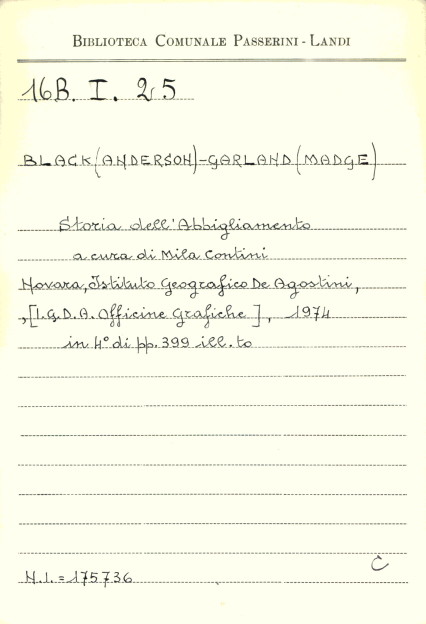 BIBLIOTECA COMUNALE PASSERINI - LANDI
16B. I. 25
BLACK (ANDERSON) - GARLAND (MADGE)
Storia dell'Abbigliamento
a cura di Mila Contini
Novara, Istituto Geografico De Agostini,
,[I.G.D.A. Officine Grafiche], 1974
in 4° di pp. 399 ill.to
C
N.I. = 175736